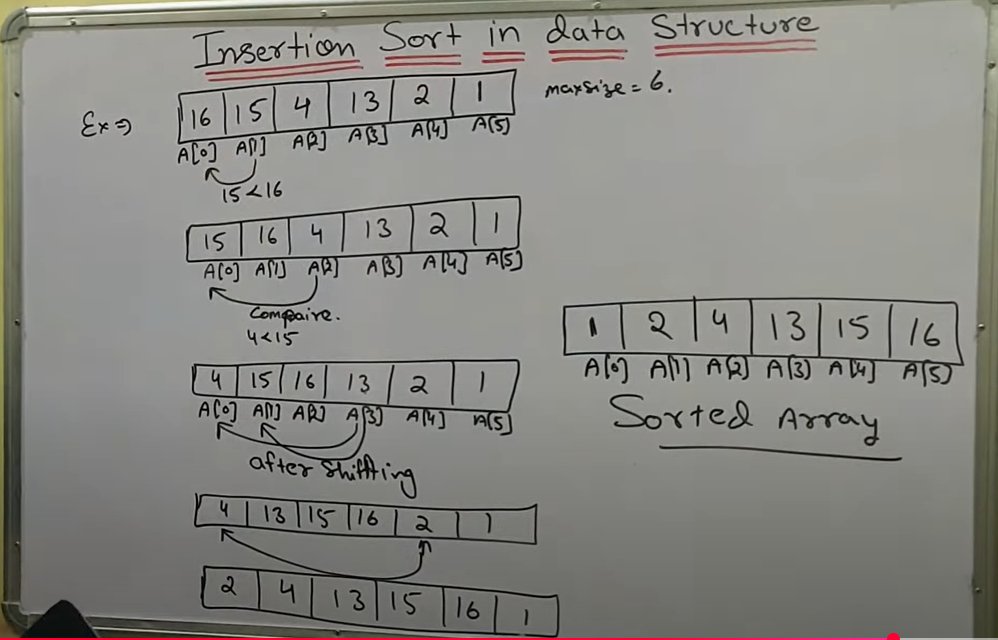 Insertion Sort in data Structure
Ex ⇒ 16 15 4 13 2 1 maxsize = 6.
A[0] A[1] A[2] A[3] A[4] A[5]
15<16
15 16 4 13 2 1
A[0] A[1] A[2] A[3] A[4] A[5]
Compaire.
4<15
4 15 16 13 2 1
A[0] A[1] A[2] A[3] A[4] A[5]
after Shiffting
4 13 15 16 2 1
2 4 13 15 16 1
1 2 4 13 15 16
A[0] A[1] A[2] A[3] A[4] A[5]
Sorted Array